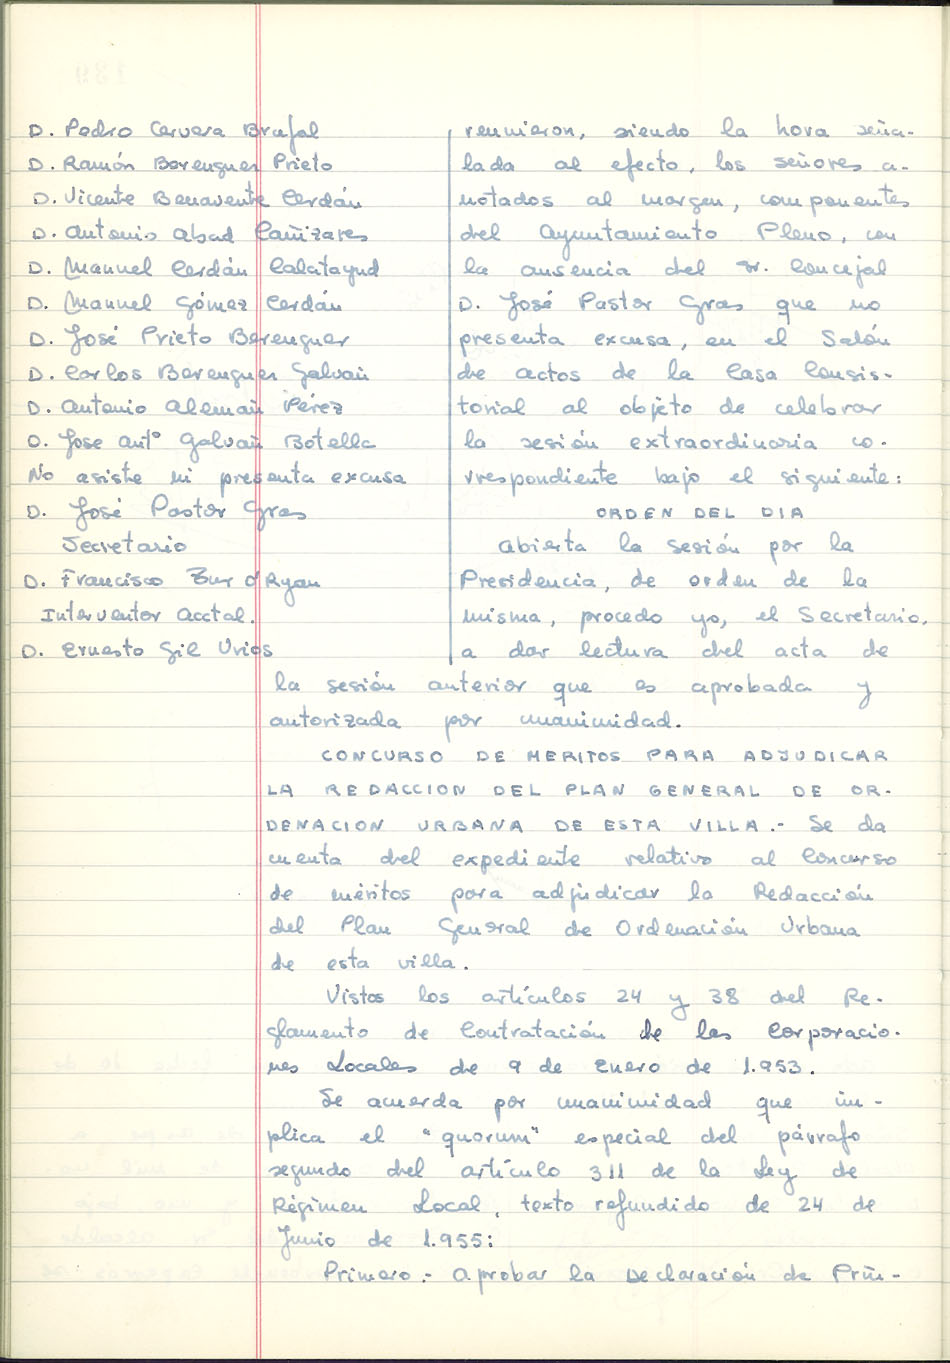 D. Pedro Cervera Brufal
D. Ramón Berenguer Prieto
D. Vicente Benavente Cerdán
D. Antonio Abad Cañizares
D. Manuel Cerdán Calatayud
D. Manuel Gómez Cerdán
D. José Prieto Berenguer
D. Carlos Berenguer Galvañ
D. Antonio Alemañ Pérez
D. Jose Antº Galvañ Botella
No asiste ni presenta excusa
D. José Pastor Gras
Secretario
D. Francisco Zur O'Ryan
Interventor Acctal.
D. Ernesto Gil Urios
reunieron, siendo la hora seña-
lada al efecto, los señores a-
notados al margen, componentes
del Ayuntamiento Pleno, con
la ausencia del Sr. Concejal
D. José Pastor Gras que no
presenta excusa, en el Salón
de actos de la Casa Consis-
torial al objeto de celebrar
la sesión extraordinaria co-
rrespondiente bajo el siguiente:
ORDEN DEL DIA
Abierta la sesión por la
Presidencia, de orden de la
misma, procedo yo, el Secretario,
a dar lectura del acta de
la sesión anterior que es aprobada y
autorizada por unanimidad.
CONCURSO DE MERITOS PARA ADJUDICAR
LA REDACCION DEL PLAN GENERAL DE OR-
DENACION URBANA DE ESTA VILLA.- Se da
cuenta del expediente relativo al Concurso
de méritos para adjudicar la Redacción
del Plan General de Ordenación Urbana
de esta villa.
Vistos los artículos 24 y 38 del Re-
glamento de Contratación de las Corporacio-
nes Locales de 9 de Enero de 1.953.
Se acuerda por unanimidad que im-
plica el "quorum" especial del párrafo
segundo del artículo 311 de la Ley de
Régimen Local, texto refundido de 24 de
Junio de 1.955:
Primero.- Aprobar la Declaración de Prin-